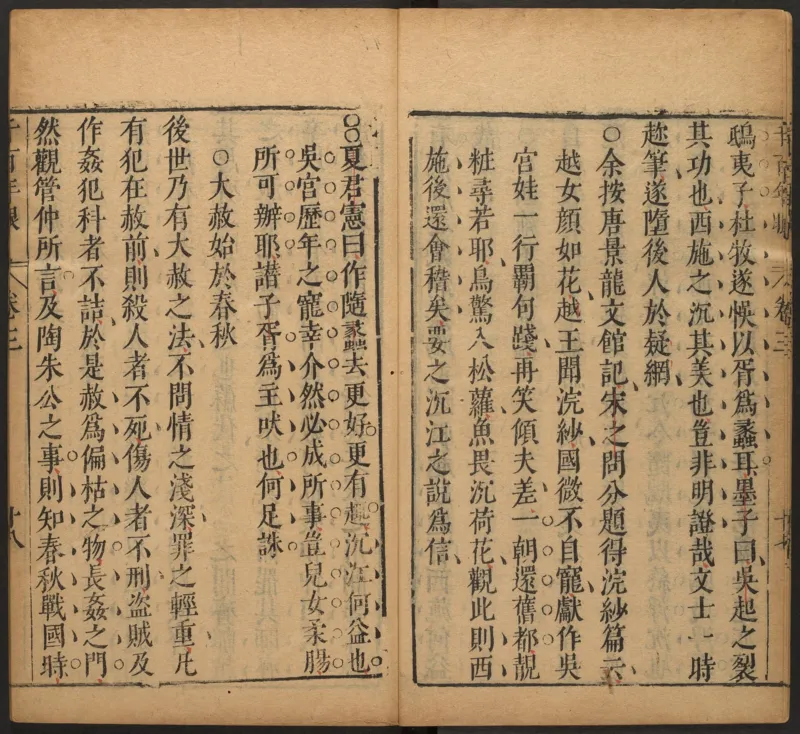 鴟夷子杜牧遂悞以胥爲蠡耳墨子曰吳起之裂
其功也西施之沉其美也豈非明證哉文士一時
趂筆遂墮後人於疑網
○余按唐景龍文館記宋之問分題得浣紗篇云
越女顔如花越王聞浣紗國微不自寵獻作吳
宮娃一行覇何踐再笑傾夫差一朝還舊都靚
粧尋若耶鳥驚入松蘿魚畏沉荷花觀此則西
施後還會稽矣要之沉江之説爲信
○○夏君憲曰作隨蠡去更好更有趣沉江何益也
吳宮歷年之寵幸介然必成所事豈兒女柔腸
所可辦耶譛子胥爲主吠也何足誅
○大赦始於春秋
後世乃有大赦之法不問情之淺深罪之輕重凡
有犯在赦前則殺人者不死傷人者不刑盜賊及
作姦犯科者不詰於是赦爲偏枯之物長姦之門
然觀管仲所言及陶朱公之事則知春秋戰國時
卷三
廿八